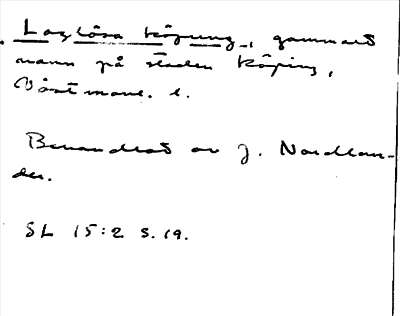 Laglösa köping, gammalt
namn på staden Köping,
Västmanl. l.
Behandlat av J. Nordlan-
der.
SL 15:2 s. 19.